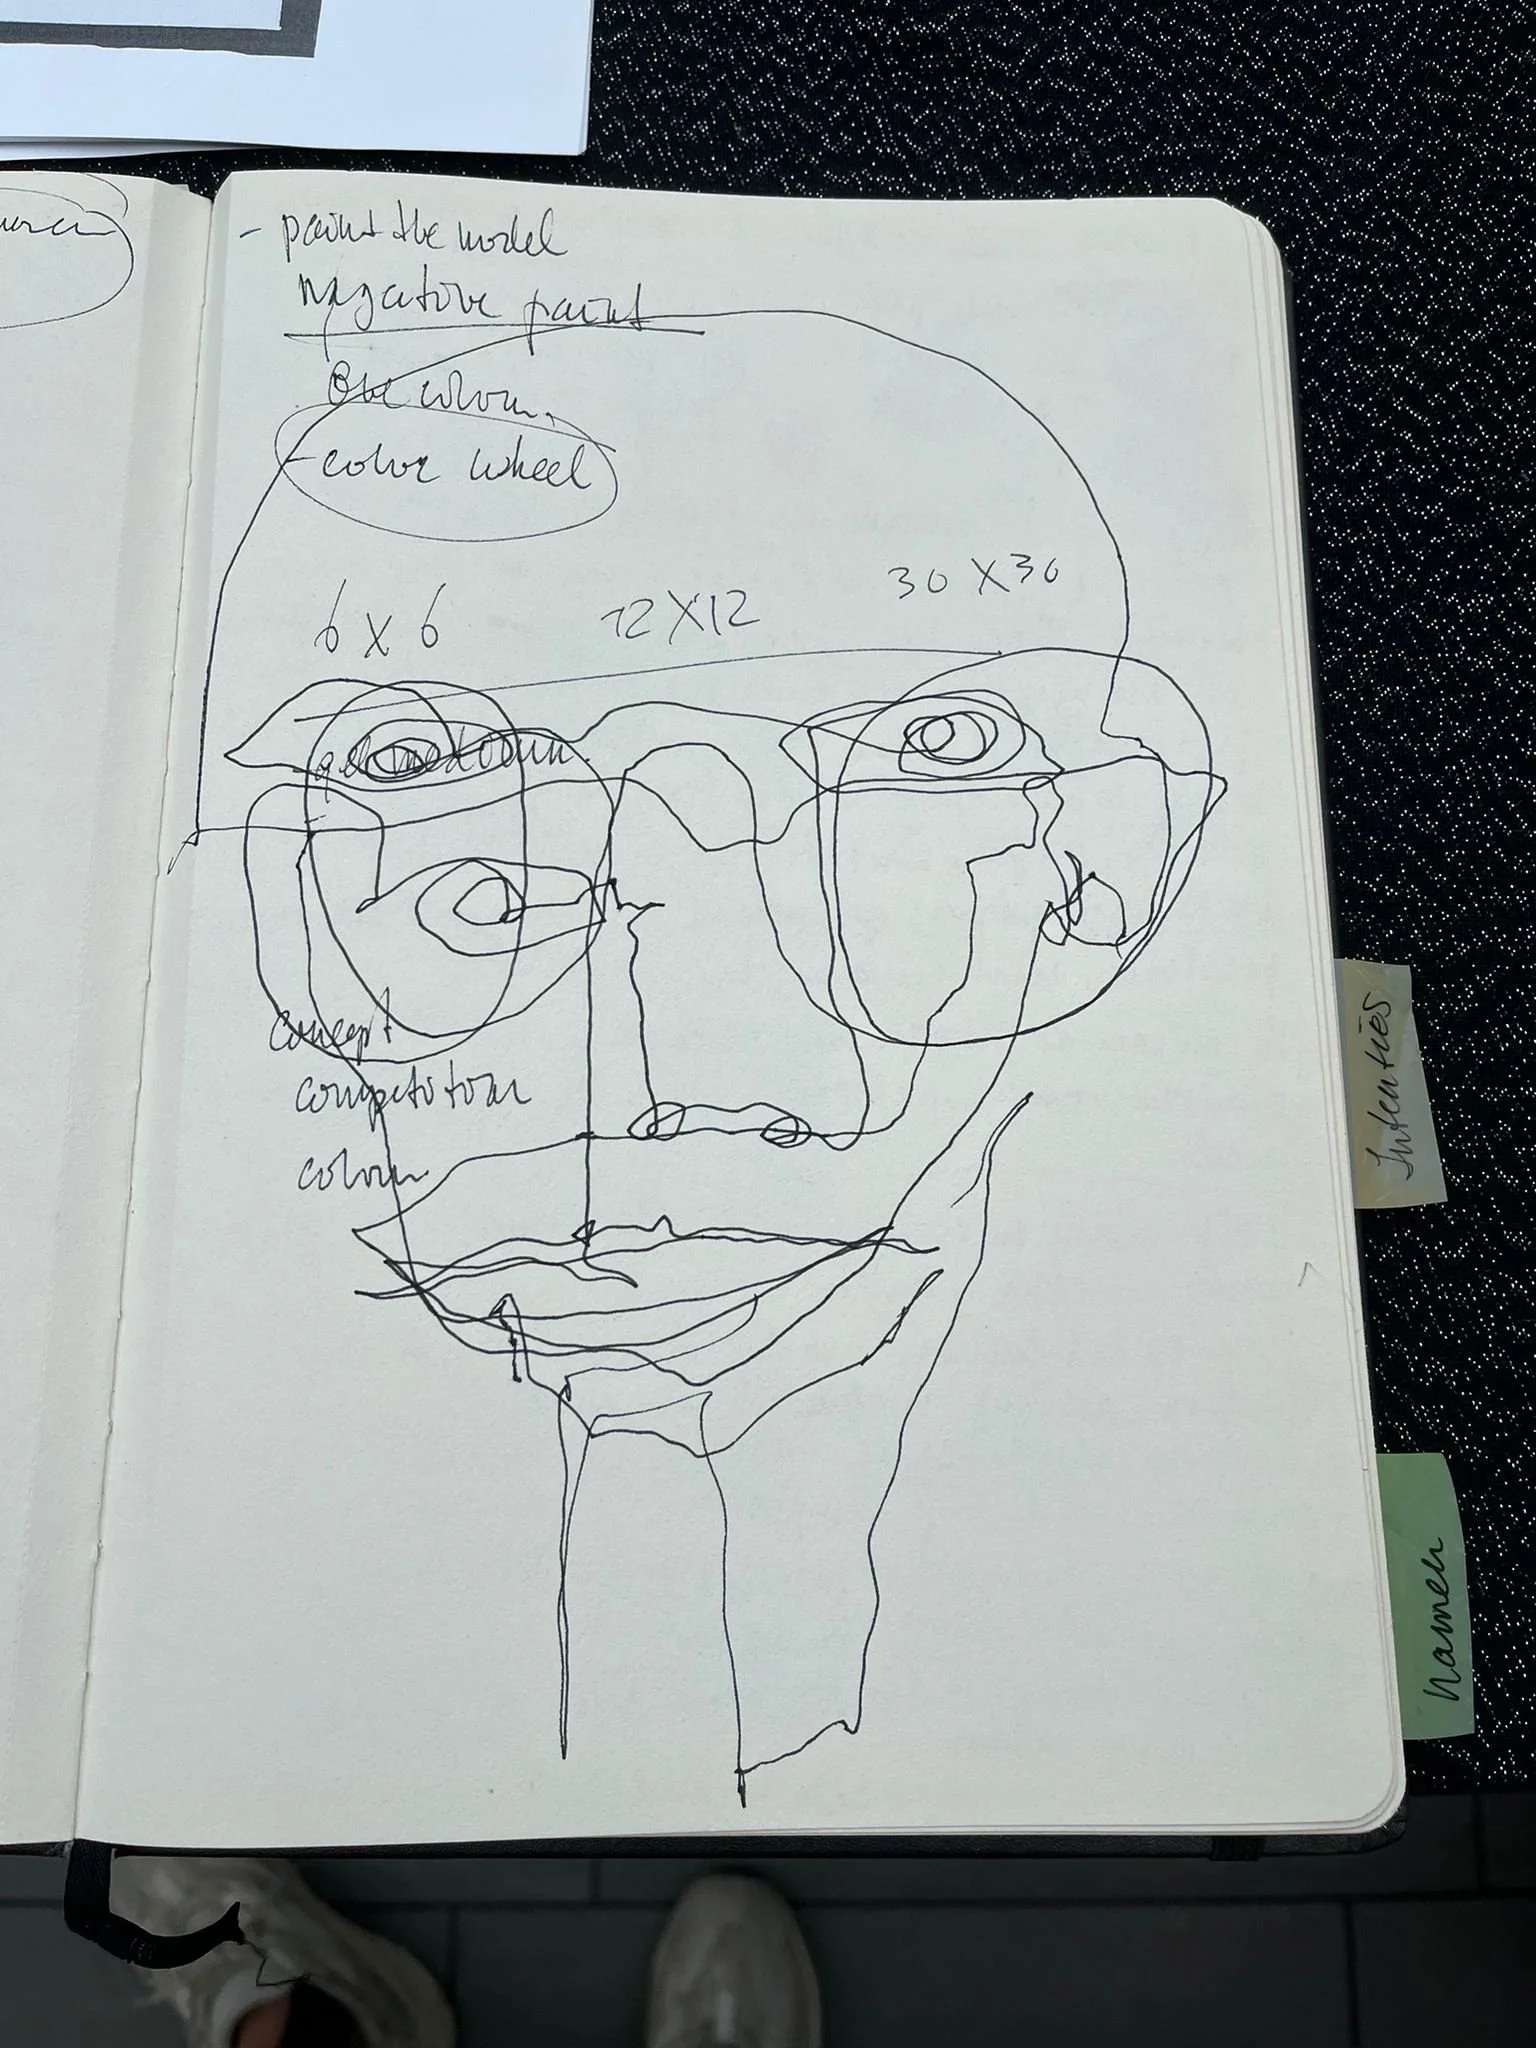 - paint the model
negative paint
one colour.
- color wheel
6 X 6
12 X 12
30 X 30
concept
competitour
colour
Intenties
Namen